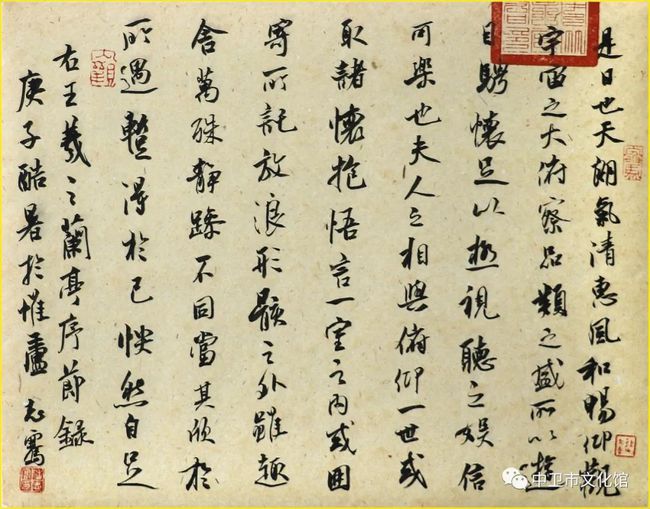 是日也天朗氣清惠風和暢仰觀
宇宙之大俯察品類之盛所以遊
目騁懷足以極視聽之娛信
可樂也夫人之相與俯仰一世或
取諸懷抱悟言一室之內或因
寄所託放浪形骸之外雖趣
舍萬殊靜躁不同當其欣於
所遇暫得於己怏然自足
右王羲之蘭亭序節錄
庚子酷暑於惟廬 志
中卫市文化馆